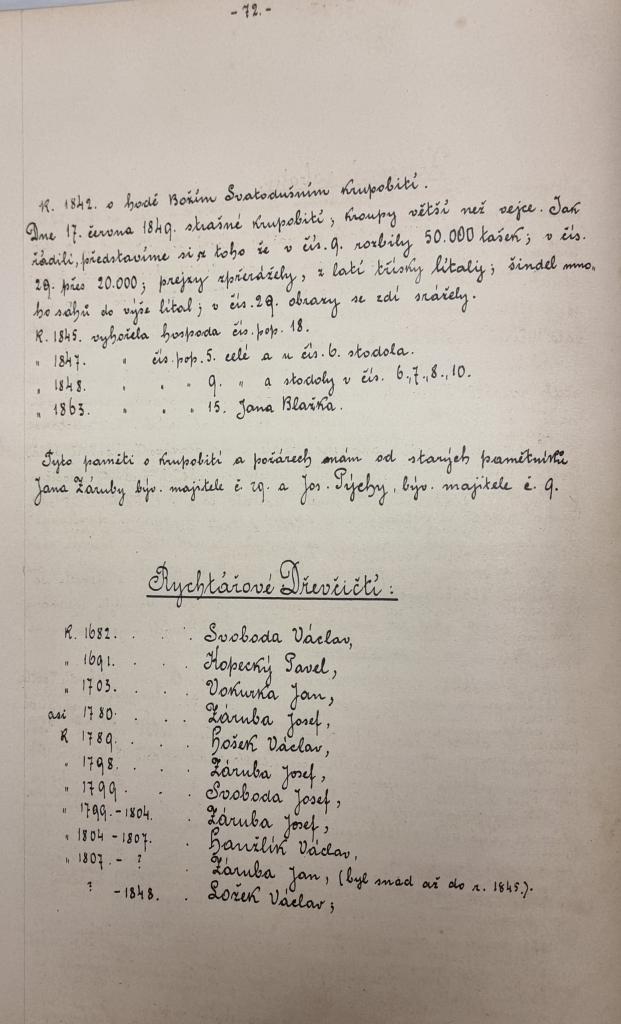 - 72. -
R. 1842. o hodě Božím Svatodušním krupobití.
Dne 17. června 1849. strašné krupobití; kroupy větší než vejce. Jak
řádili, představíme si z toho že v čís. 9. rozbily 50.000 tašek; v čís.
29. přes 20.000; prejzy zpřerážely, z latí třísky lítaly; šindel mno-
ho sáhů do výše lítal; v čís. 29. obrazy se zdí srážely.
R. 1845. vyhořela hospoda čís. pop. 18.
" 1847. " čís. pop. 5. celé a u čís. 6. stodola.
" 1848. " " " 9. " a stodoly v čís. 6., 7., 8., 10.
" 1863. " " " 15. Jana Blažka.
Tyto paměti o krupobití a požárech mám od starých pamětníků
Jana Záruby býv. majitele č. 29. a Jos. Pýchy, býv. majitele č. 9.
Rychtářové Dřevčičtí:
R. 1682. . . . Svoboda Václav,
" 1691. . . . Kopecký Pavel,
" 1703. . . . Vokurka Jan,
asi 1780. . . . Záruba Josef,
R 1789. . . . Hošek Václav,
" 1798. . . . Záruba Josef,
" 1799. . . . Svoboda Josef,
" 1799. - 1804. . Záruba Josef,
" 1804 - 1807. . Hanžlík Václav,
" 1807. - ? Záruba Jan, (byl snad až do r. 1845.).
? - 1848. . Ložek Václav;